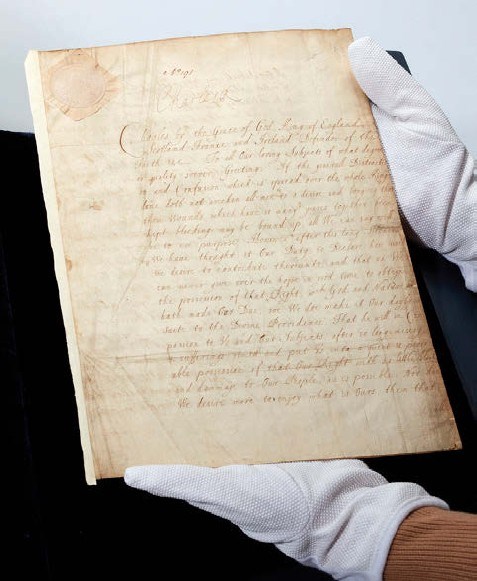 Charles R
Charles by the Grace of God, King of England
Scotland France and Ireland Defender of the
Faith &c. To all Our loving Subjects of what degree
or quality soever Greeting. If the general Distraction
and Confusion which is spread over the whole King
doth not awaken all men to a desire and longing that
those Wounds which have so many years together been
kept bleeding may be bound up, all We can say will
be to no purpose. However after this long
We have thought it Our Duty to Declare how much
We desire to contribute thereunto, and that as We
can never give over the hope in good time to obtain
the possession of that Right, which God and Nature
hath made Our due, so We do make it Our dayly
suite to the Divine Providence, That he will in Com
passion to Us and Our Subjects after so long misery
& sufferings remit and put Us into a quiet & peace
able possession of that Our Right with as little blood
and damage to Our People, as is possible. Nor do
We desire more to enjoy what is Ours then that